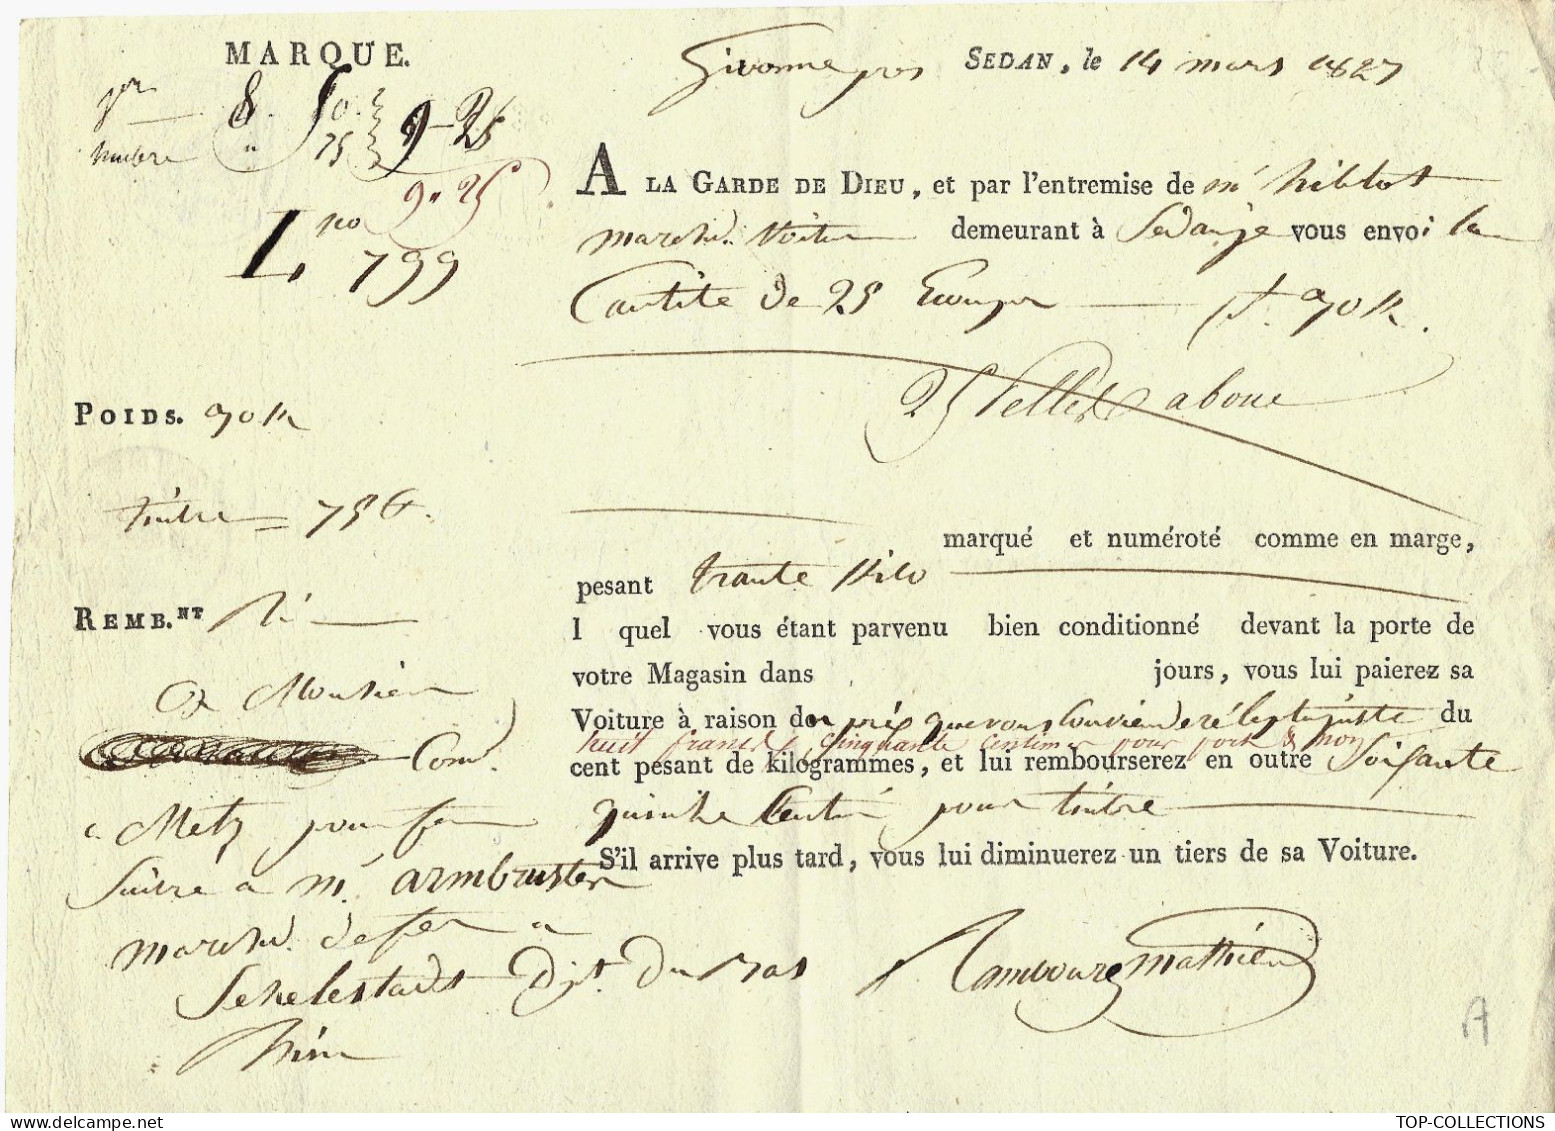 MARQUE.
Givonne près SEDAN, le 14 mars 1827
8. 50.
timbre " 75 9-25
9. 25
A LA GARDE DE DIEU, et par l'entremise de mr hiblot
march. voitur demeurant à Sedan je vous envoi la
no
L. 799
Cantité de 25 pt. 90 k.
25 Pelle a boue
POIDS. 90 k
timbre = 75 c.
marqué et numéroté comme en marge,
pesant trante kilo
REMB.NT
I quel vous étant parvenu bien conditionné devant la porte de
votre Magasin dans jours, vous lui paierez sa
A Monsieur
Voiture à raison de prix que vous du
huit francs cinquante centimes pour port & non
Com.
cent pesant de kilogrammes, et lui rembourserez en outre soisante
a Metz pour fer quinze centi pour timbre
S'il arrive plus tard, vous lui diminuerez un tiers de sa Voiture.
Suivre a mr. armbruster
march. de fer a
Schelestadt Dpt. Du Bas
Rhin
Rambourg mathieu
A
TOP-COLLECTIONS